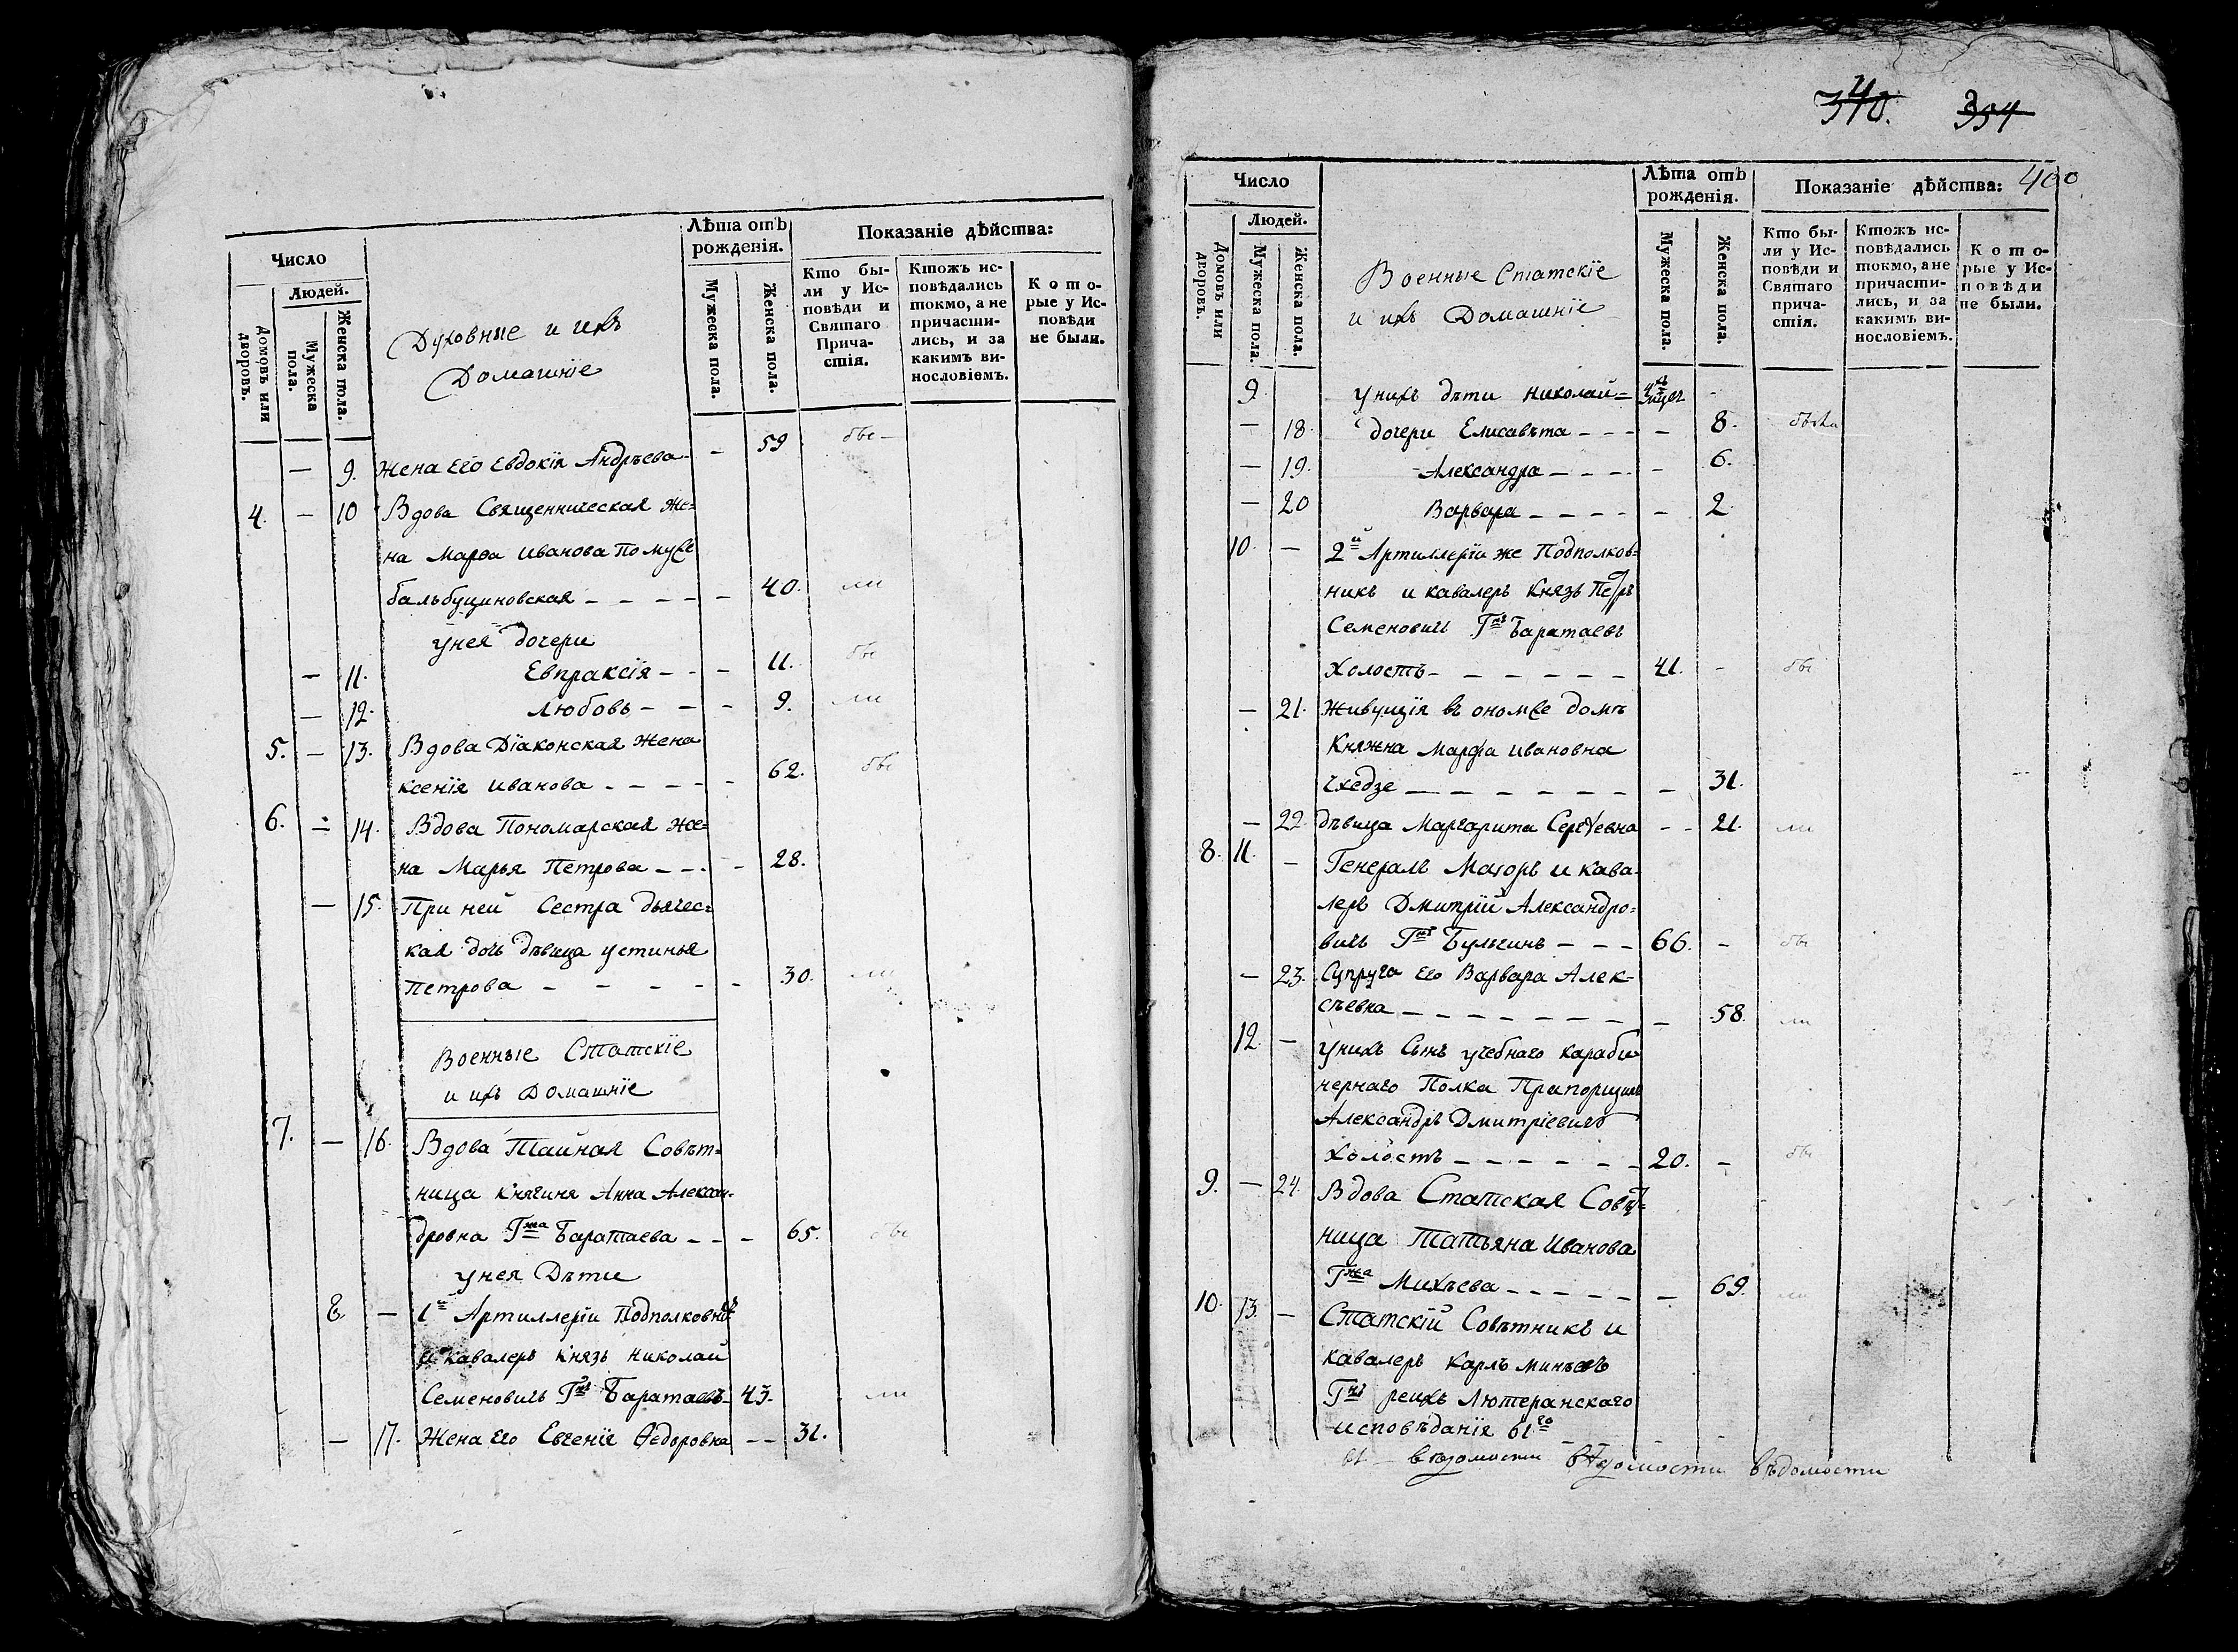 Число
Людей.
Домовъ или дворовъ.
Мужеска пола.
Женска пола.
Духовные и ихъ
Домашнїе
Лѣта отъ рожденїя.
Мужеска пола.
Женска пола.
Показанїе дѣйства:
Кто были у Исповѣди и Святаго Причастїя.
Ктожъ исповѣдались токмо, а не причастились, и за какимъ винословїемъ.
Которые у Исповѣди не были.
— 9. Жена Его Евдокїя Андрѣева — 59 бы —
4. — 10 Вдова Священническая Же=
на Марѳа Иванова По муже
бальбуциновская — — — — — 40. ли
у нея дочери
— 11. Евпраксїя — — — 11. бы
— 12. Любовь — — — 9. ли
5. — 13. Вдова Дїаконская Жена
Ксенїя Иванова — — — — — 62. бы
6. — 14. Вдова Пономарская Же=
на Марья Петрова — — — 28.
— 15. При ней Сестра Дьячес=
кая дочь дѣвица Устинья
Петрова — — — — — 30. ли
Военные Статскїе
и ихъ Домашнїе
7. — 16. Вдова Тайная Совѣт=
ница Княгиня Анна Алексан=
дровна Гжа Баратаева — — — 65. бы
у нея Дѣти
8. — 1й Артиллерїи Подполковникъ
и Кавалеръ Князь Николай
Семеновичь Гнъ Баратаевъ — 43. ли
— 17. Жена Его Евгенїя Ѳедоровна — — 31.
340. 394
400
Число
Людей.
Домовъ или дворовъ.
Мужеска пола.
Женска пола.
Военные Статскїе
и ихъ Домашнїе
Лѣта отъ рожденїя.
Мужеска пола.
Женска пола.
Показанїе дѣйства:
Кто были у Исповѣди и Святаго причастїя.
Ктожъ исповѣдались токмо, а не причастились, и за какимъ винословїемъ.
Которые у Исповѣди не были.
9. у нихъ дѣти Николай =
— 18. дочери Елисавѣта — — — — 8. была
— 19. Александра — — — — 6.
— 20 Варвара — — — — — 2.
10. — 2й Артиллерїи же Подполков=
никъ и Кавалеръ Князь Петръ
Семеновичь Гнъ Баратаевъ
Холостъ — — — — — — 41. — бы
— 21. Живущїя въ ономже домѣ
Княжна Марфа Ивановна
Чхедзе — — — — — — — 31.
— 22. дѣвица Маргарита Сергѣевна — — 21. ли
8. 11. — Генералъ Маїоръ и Кава=
леръ Дмитрїй Александро=
вичь Гнъ Булыгинъ — — — 66. — бы
— 23. Супруга его Варвара Алек=
сѣевна — — — — — — — — 58. ли
12. — у нихъ Сынъ учебнаго Караби=
нернаго Полка Прапорщикъ
Александръ Дмитрїевичъ
Холостъ — — — — — — 20. — бы
9. — 24. Вдова Статская Совѣт=
ница Татьяна Иванова
Гжа Михѣева — — — — — — 69. ли
10. 13. — Статскїй Совѣтникъ и
Кавалеръ Карлъ
Гнъ рейхъ Лютеранскаго
исповѣданїя 61го — — —
61 — вѣдомости вѣдомости вѣдомости